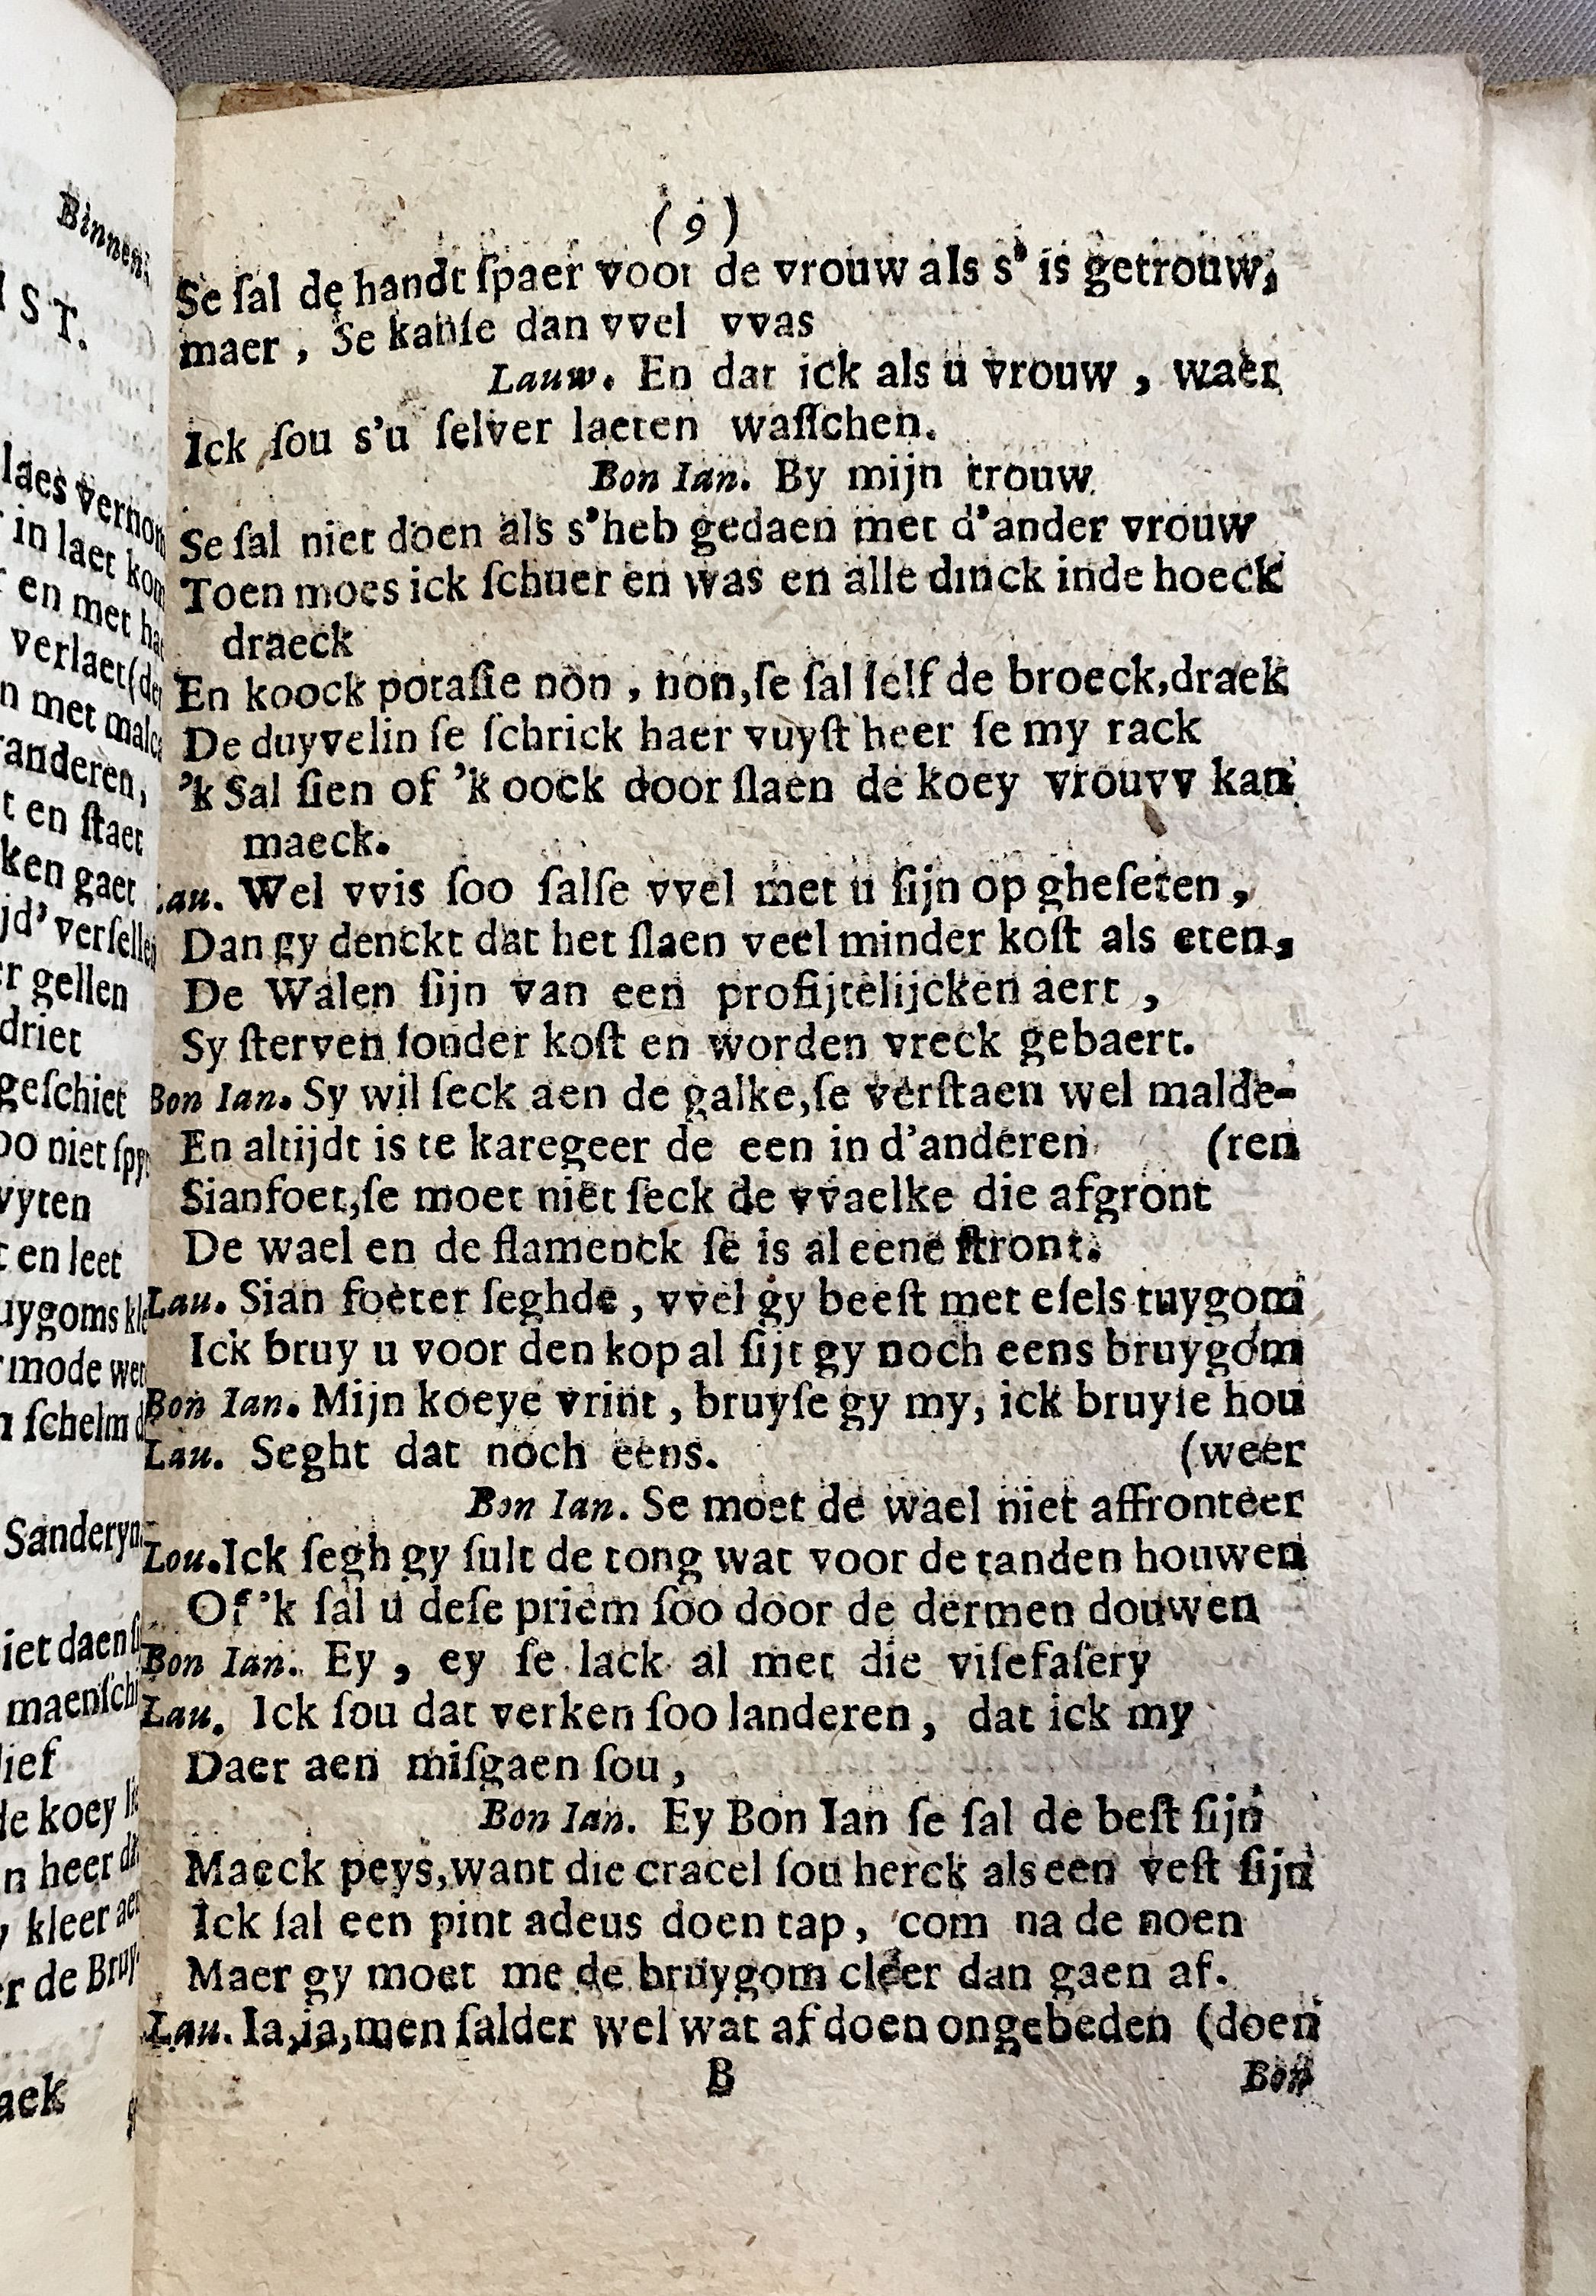 (9)
Se ſal de handt ſpaer voor de vrouw als s' is getrouw,
maer, Se kanſe dan vvel vvas
Lauw. En dat ick als u vrouw, waer
Ick ſou s'u ſelver laeten waſſchen.
Bon Ian. By mijn trouw
Se ſal niet doen als s'heb gedaen met d'ander vrouw
Toen moes ick ſchuer en was en alle dinck inde hoeck
draeck
En koock potaſie non, non, ſe ſal ſelf de broeck, draek
De duyvelin ſe ſchrick haer vuyſt heer ſe my rack
'k Sal ſien of 'k oock door ſlaen de koey vrouvv kan
maeck.
Lau. Wel vvis ſoo ſalſe vvel met u ſijn op gheſeten,
Dan gy denckt dat het ſlaen veel minder koſt als eten,
De Walen ſijn van een profijtelijcken aert,
Sy ſterven ſonder koſt en worden vreck gebaert.
Bon Ian. Sy wil ſeck aen de galke, ſe verſtaen wel malde-
En altijdt is te karegeer de een in d'anderen (ren
Sianfoet, ſe moet niet ſeck de vvaelke die afgront
De wael en de flamenck ſe is al eene ſtront.
Lau. Sian foeter ſeghde, vvel gy beeſt met eſels tuygom
Ick bruy u voor den kop al ſijt gy noch eens bruygom
Bon Ian. Mijn koeye vrint, bruyſe gy my, ick bruyſe hou
Lau. Seght dat noch eens. (weer
Bon Ian. Se moet de wael niet affronteer
Lou. Ick ſegh gy ſult de tong wat voor de tanden houwen
Of 'k ſal u deſe priem ſoo door de dermen douwen
Bon Ian. Ey, ey ſe lack al met die viſefaſery
Lau. Ick ſou dat verken ſoo landeren, dat ick my
Daer aen miſgaen ſou,
Bon Ian. Ey Bon Ian ſe ſal de beſt ſijn
Maeck peys, want die cracel ſou herck als een veſt ſijn
Ick ſal een pint adeus doen tap, com na de noen
Maer gy moet me de bruygom cleer dan gaen af.
Lau. Ia, ja, men ſalder wel wat af doen ongebeden (doen
B Bon
Binnen.
IST.
laes
in laet
en met
verlaet
met
anderen,
t en ſtaet
ken gaet
jd' verſellen
gellen
driet
geſchiet
niet
en leet
mode
ſchelm
Sanderyn
lief
de koey
heer
kleer aen
de